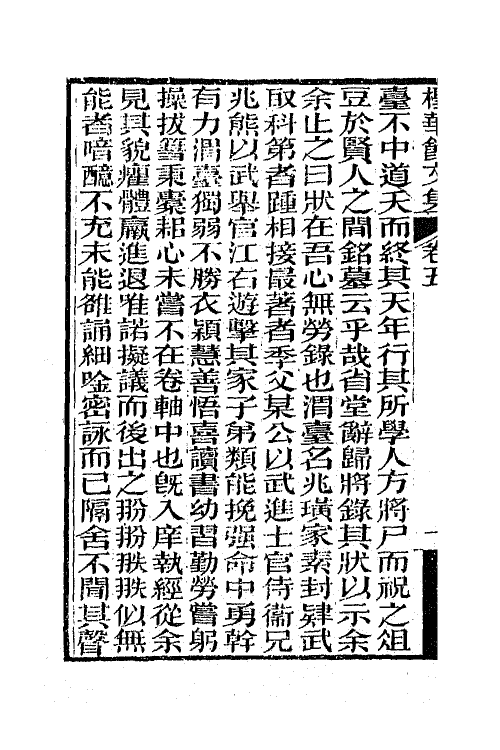 樨華館文集 卷五 一
臺不中道夭而終其天年行其所學人方將尸而祝之俎
豆於賢人之間銘墓云乎哉省堂辭歸將錄其狀以示余
余止之曰狀在吾心無勞錄也渭臺名兆璜家素封肄武
取科第者踵相接最著者季父某公以武進士官侍衞兄
兆熊以武舉官江右遊擊其家子弟類能挽强命中勇幹
有力渭臺獨弱不勝衣穎慧善悟喜讀書幼習勤勞嘗躬
操拔罾秉橐耜心未嘗不在卷軸中也旣入庠執經從余
見其貌癯體羸進退唯諾擬議而後出之㸮㸮抶抶似無
能者喑醷不充未能雒誦細唫密詠而已隔舍不聞其聲